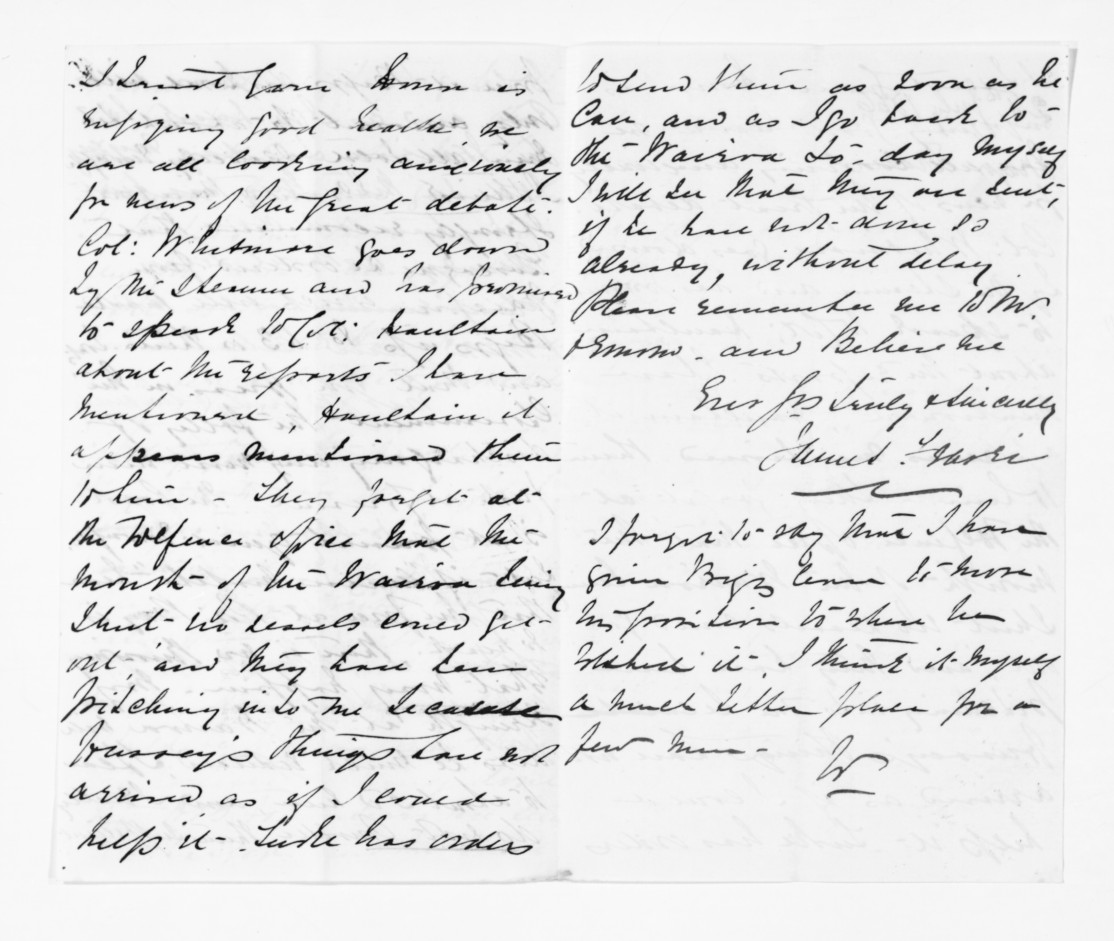 I trust you are
enjoying good health we
are all looking anxiously
for news of the great debate.
Col: Whitmore goes down
by the Steamer and has promised
to speak to Col: Haultain
about the reports I have
mentioned, Haultain it
appears mentioned them
to him - They forget at
the Defence office that the
mouth of the Wairoa being
shut no vessels could get
out, and they have been
pitching into me because
things have not
arrived as if I could
help it - Tuke has orders
to send them as soon as he
can, and as I go back to
the Wairoa to-day myself
I will see that they are sent,
if he have not done so
already, without delay
Please remember me to Mr.
and Believe me
Ever Yrs truly & sincerely
James Fraser
I forgot to say that I have
given Biggs leave to move
his position to where he
wished it, I think it myself
a much better place for a
few men -